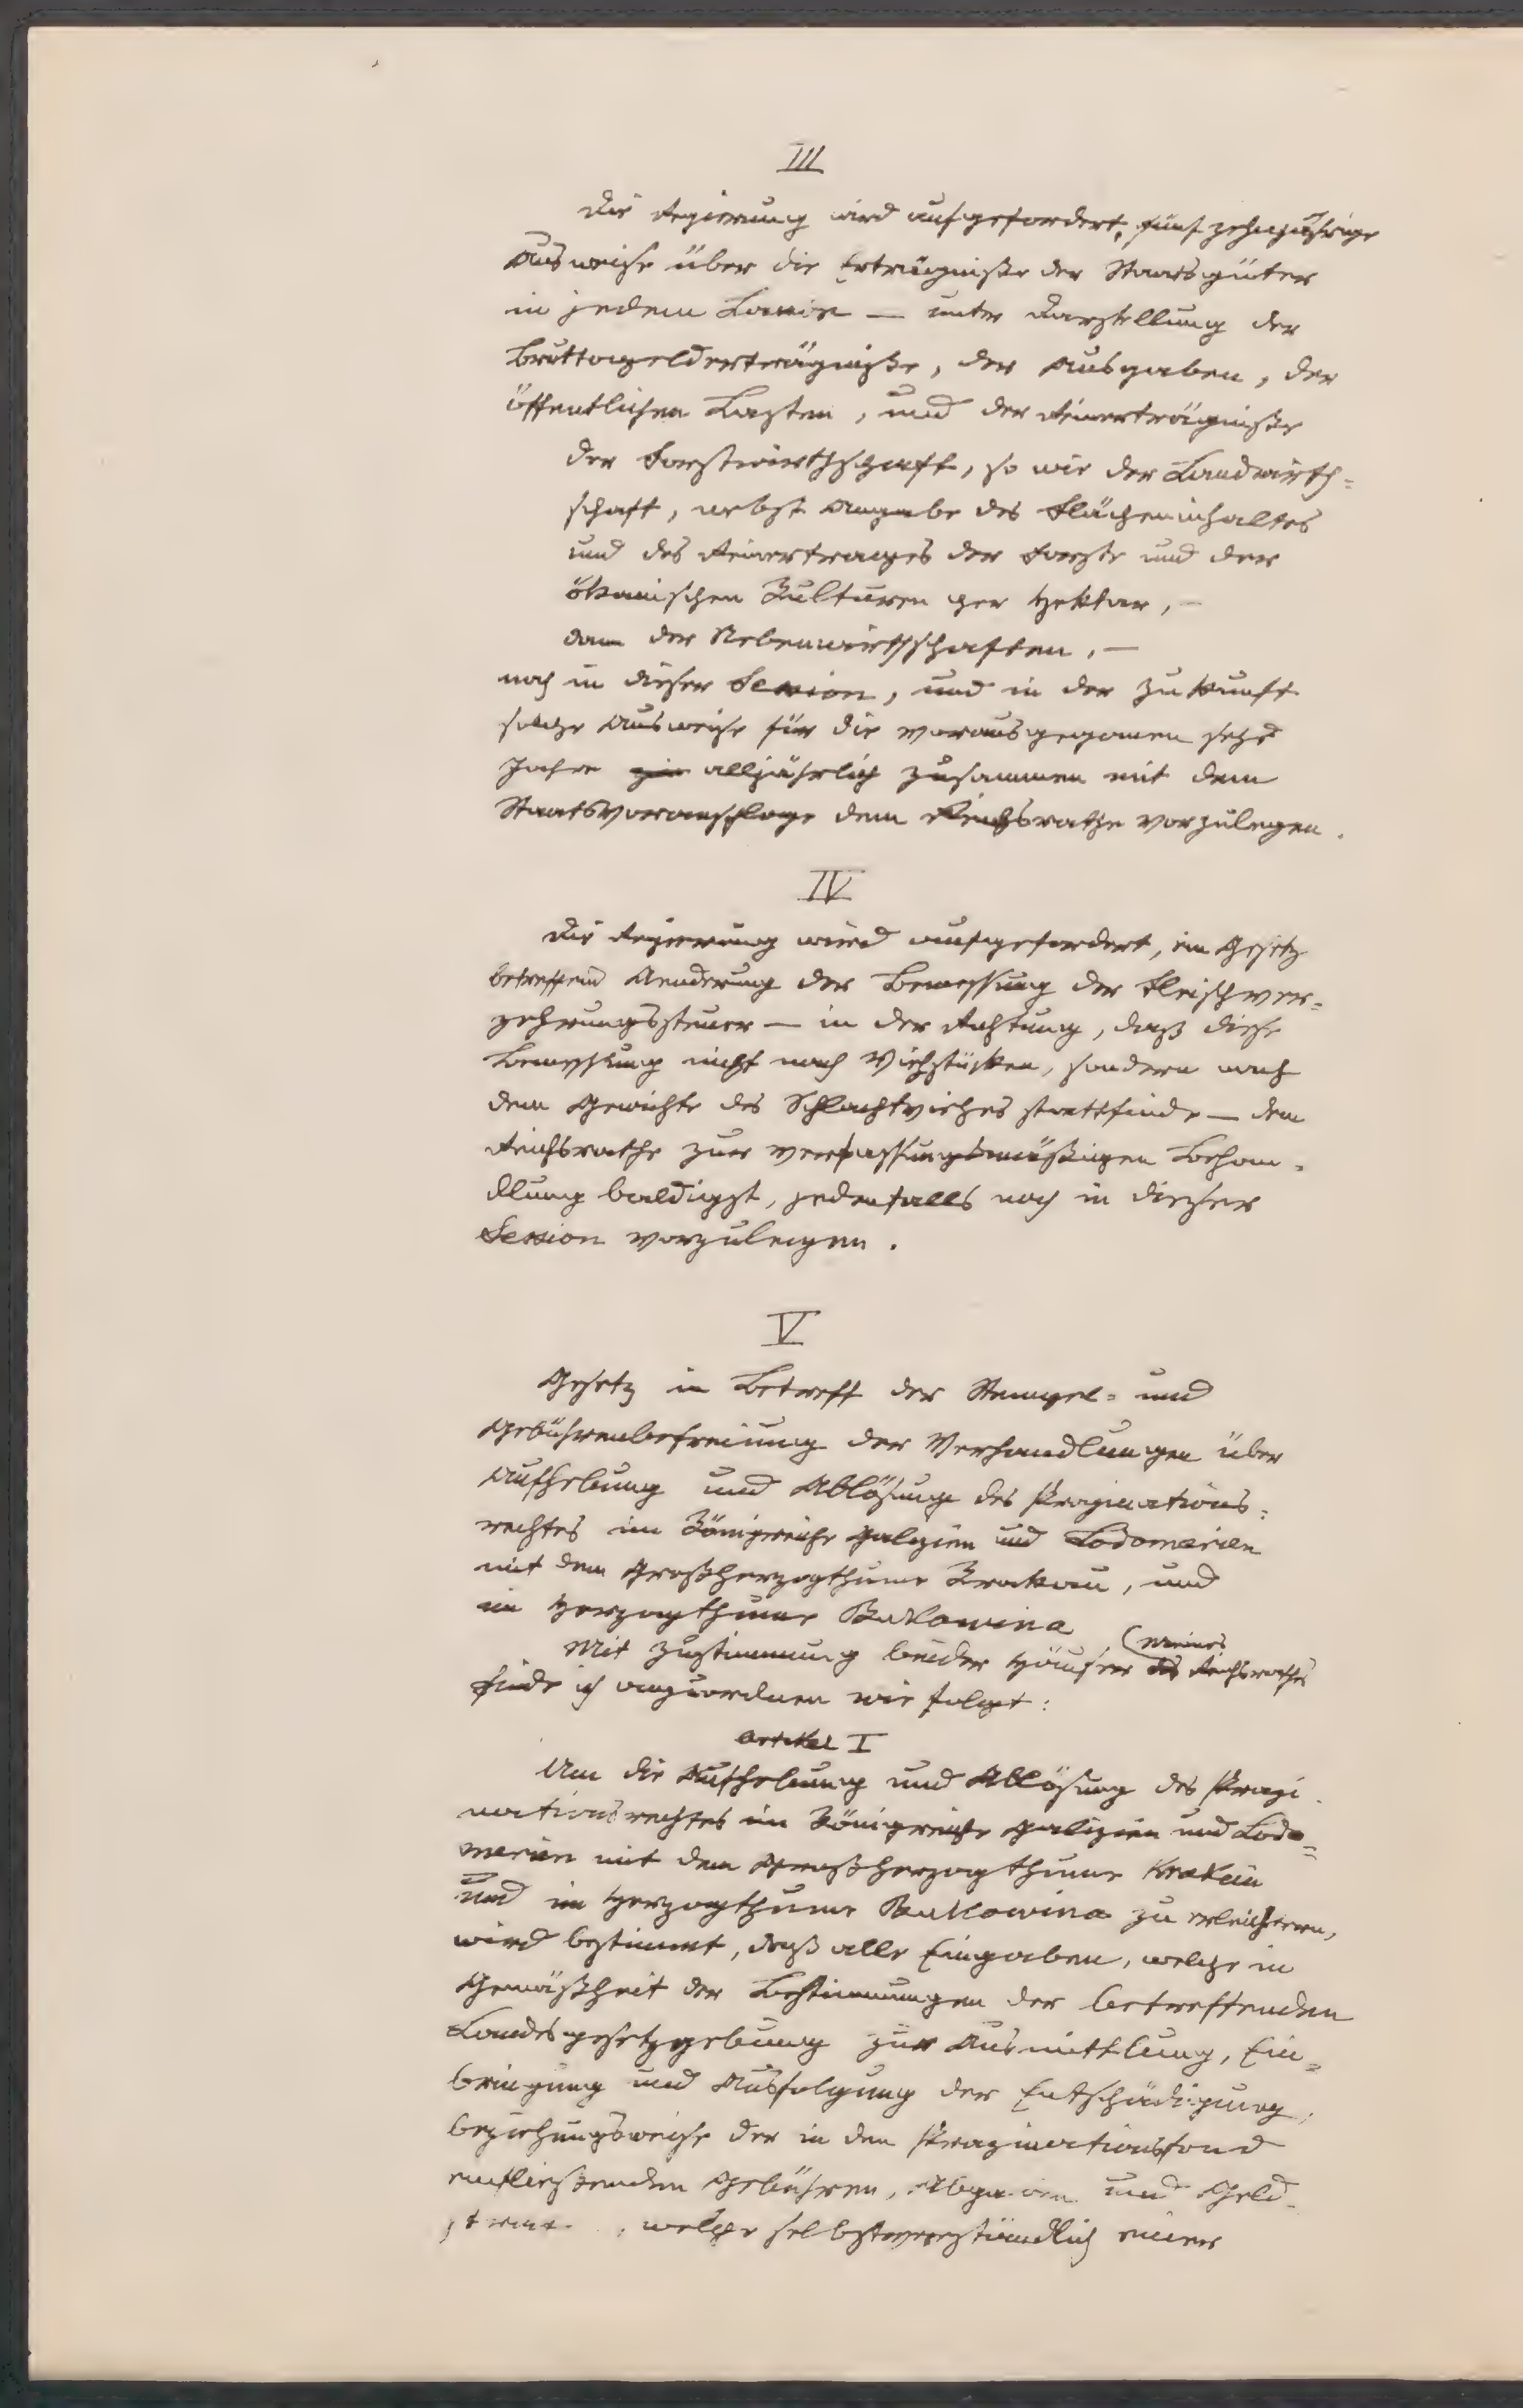 III
Die Regierung wird aufgefordert, fünfzehnjährige
Ausweise über die Erträgnisse der Staatsgüter
in jedem Lande — unter Darstellung der
Bruttogelderträgniße, der Ausgaben, der
öffentlichen Lasten, und der Reinerträgniße
der Forstwirthschaft, so wie der Landwirth=
schaft, nebst Angabe des Flächeninhaltes
und des Reinertrages der Forste und der
ökonischen Kulturen per Hektar, —
dann der Nebenwirthschaften, —
noch in dieser Session, und in der Zukunft
solche Ausweise für die vorausgegangenen sechs
Jahre alljährlich zusammen mit dem
Staatsvoranschlage dem Reichsrathe vorzulegen.
IV
Die Regierung wird aufgefordert, ein Gesetz
betreffend Aenderung der Bemessung der Fleischver=
zehrungssteuer — in der Richtung, daß diese
Bemessung nicht nach Viehstücken, sondern nach
dem Gewichte des Schlachtviehes stattfinde — dem
Reichsrathe zur verfassungsmäßigen Behan=
dlung baldigst, jedenfalls noch in dieser
Session vorzulegen.
V
Gesetz in Betreff der Stempel= und
Gebührenbefreiung der Verhandlungen über
Aufhebung und Ablösung des Propinations=
rechtes im Königreiche Galizien und Lodomerien
mit dem Großherzogthume Krakau, und
im Herzogthume Bukowina
Mit Zustimmung beider Häuser des (meines Reichsrathes
finde ich anzuordnen wie folgt:
Artikel I
Um die Aufhebung und Ablösung des Propi-
nationsrechtes im Königreiche Galizien und Lodo=
merien mit dem Großherzogthume Krakau
und im Herzogthume Bukowina zu erleichtern,
wird bestimmt, daß alle Eingaben, welche in
Gemäßheit der Bestimmungen der betreffenden
Landesgesetzgebung zur Ausmittlung, Ein=
bringung und Ausfolgung der Entschädigung,
beziehungsweise der in den Propinationsfond
einfließenden Gebühren, Abgaben und Geld-
welche selbstverständlich einer